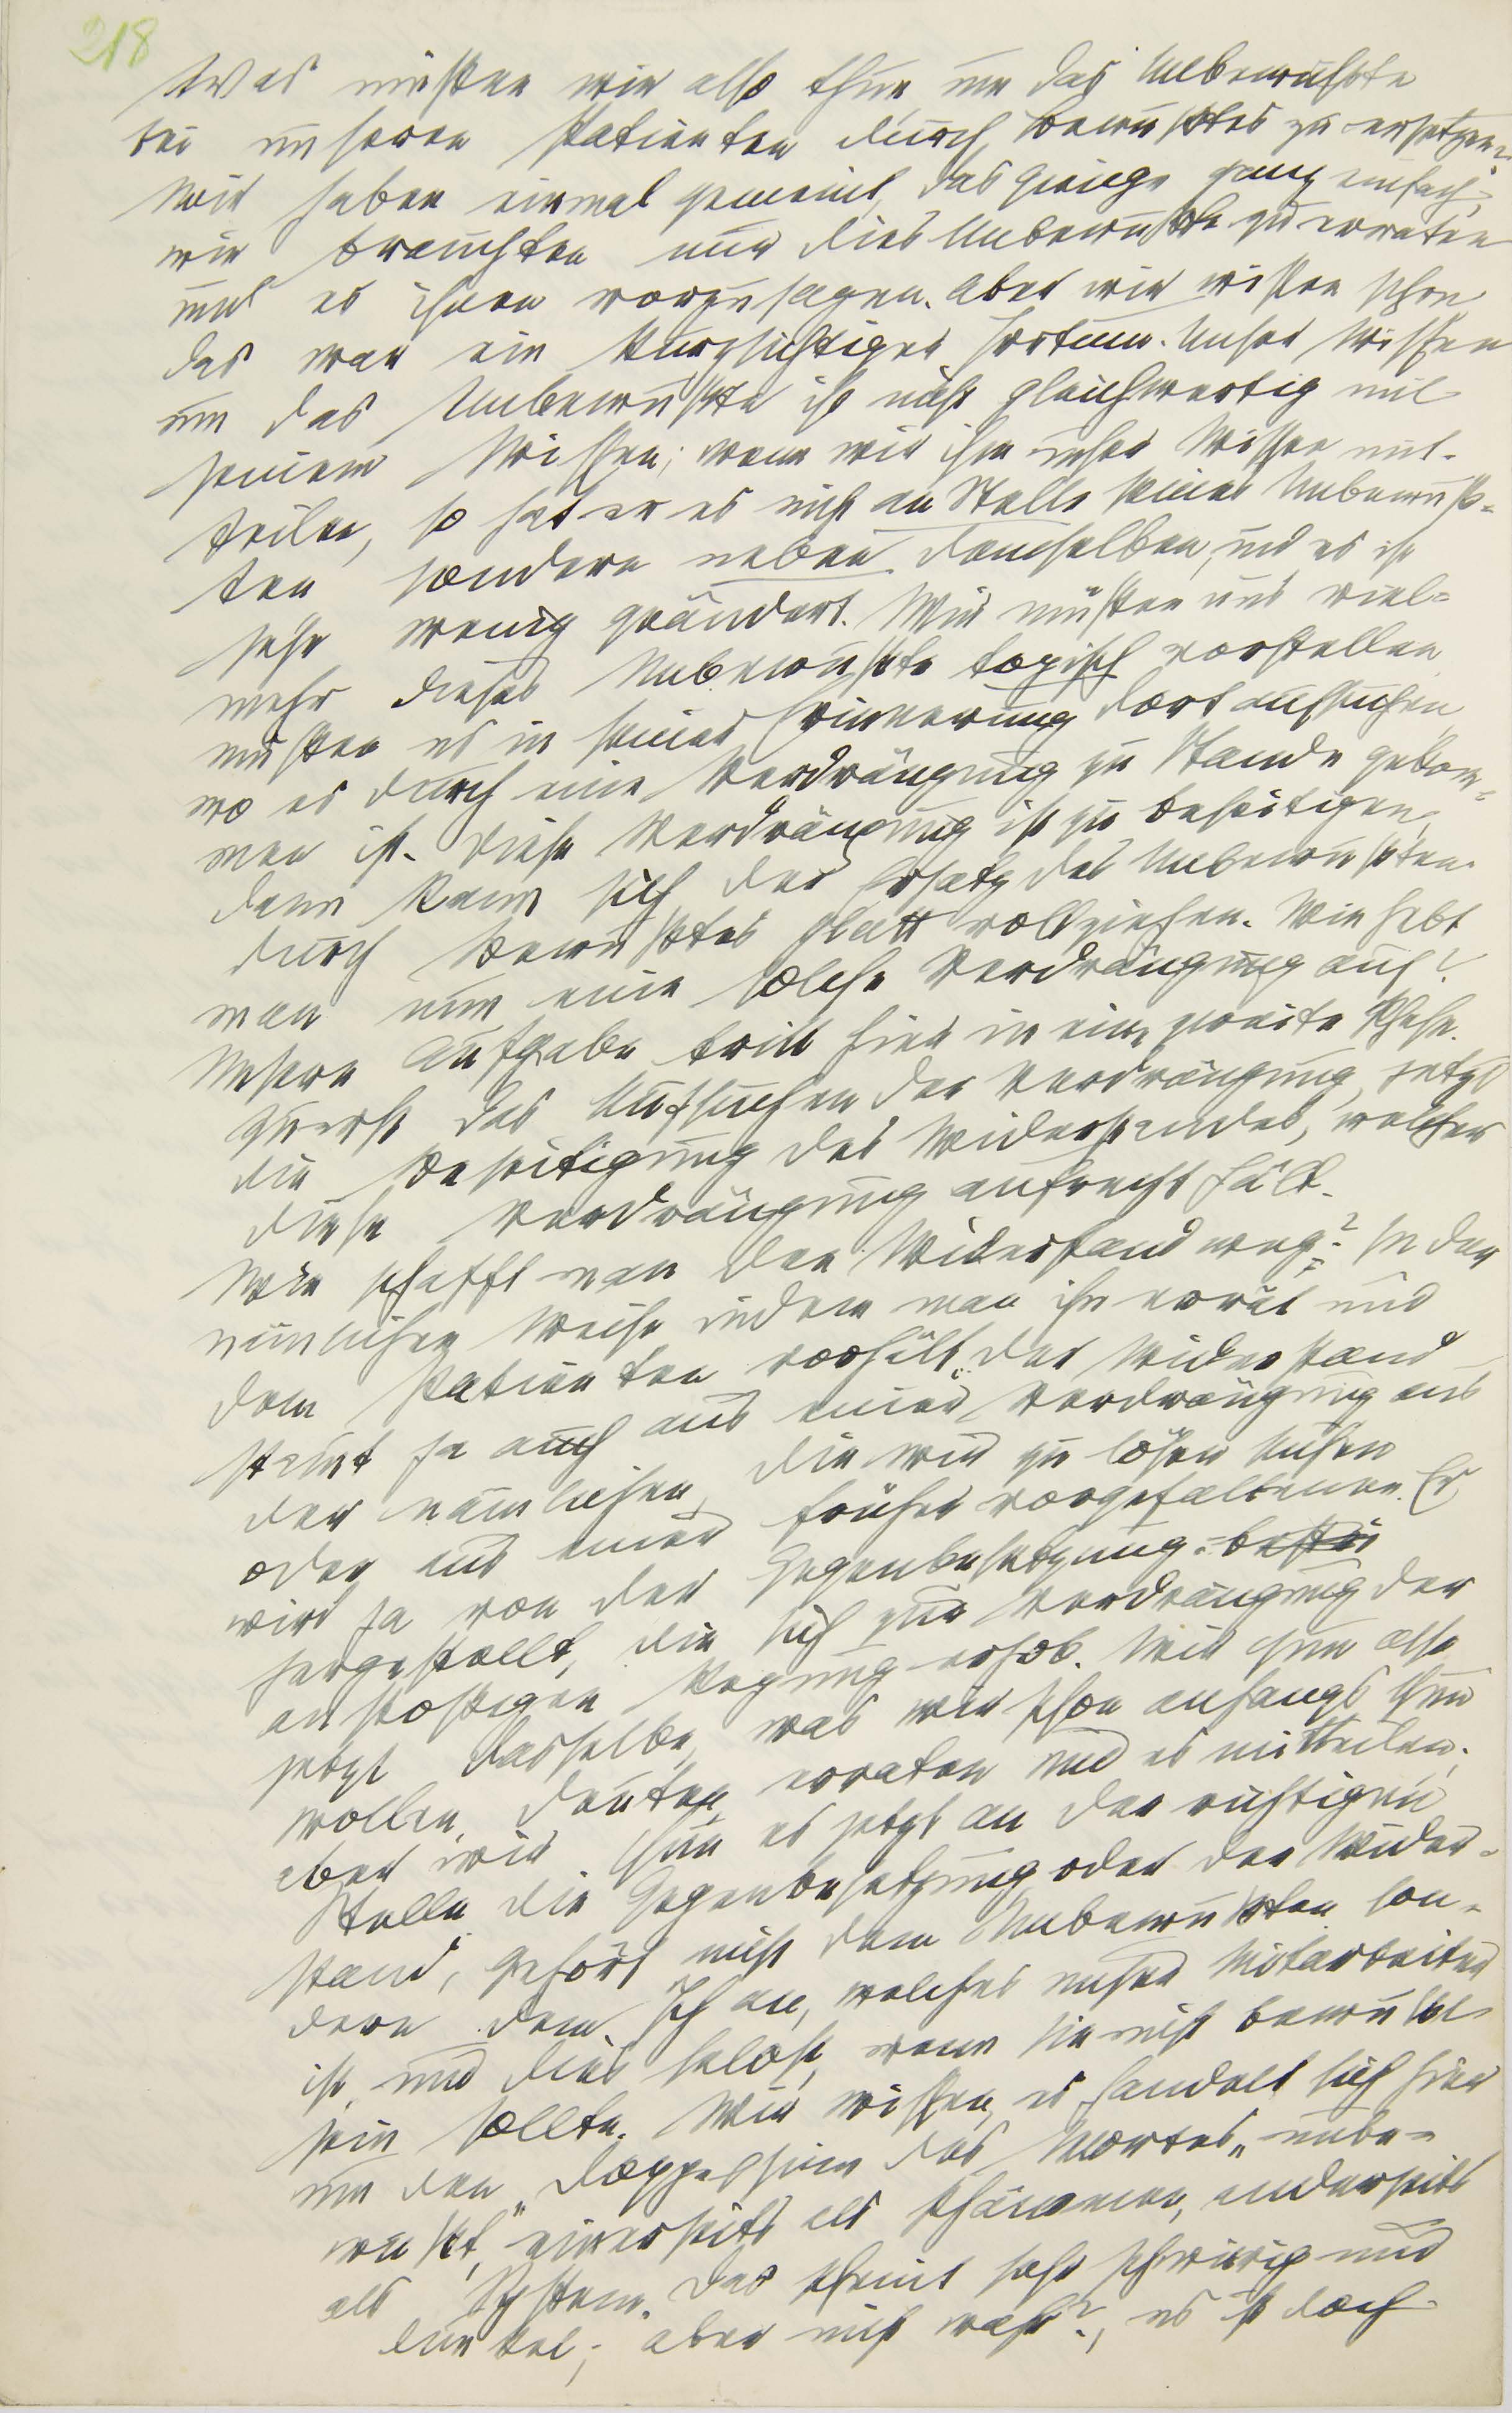 218
Was müssen wir also thun, um das Unbewußte
bei unseren Patienten durch Bewußtes zu ersetzen?
Wir haben einmal gemeint, das ginge ganz einfach,
wir brauchten nur dies Unbewußte zu erraten
und es ihnen vorzusagen. Aber wir wissen schon
das war ein kurzsichtiger Irrtum. Unser Wissen
um das Unbewußte ist nicht gleichwertig mit
seinem Wissen; wenn wir ihm unser Wissen mit-
teilen, so hat er es nicht an Stelle seines Unbewuß-
ten sondern neben demselben, und es ist
sehr wenig geändert. Wir müssen uns viel-
mehr dieses Unbewußte topisch vorstellen
müssen es in seiner Erinnerung dort aufsuchen,
wo es durch eine Verdrängung zu Stande gekom-
men ist. Diese Verdrängung ist zu beseitigen,
dann kann sich der Ersatz des Unbewußten
durch Bewußtes glatt vollziehen. Wie hebt
man nun eine solche Verdrängung auf?
Unsere Aufgabe tritt hier in eine zweite Phase.
Zuerst das Aufsuchen der Verdrängung, jetzt
die Beseitigung des Widerstandes, welcher
diese Verdrängung aufrecht hält.
Wie schafft man den Widerstand weg? In der
nämlichen Weise indem man ihn errät und
dem Patienten vorhält. Der Widerstand
stamt ja auch aus einer Verdrängung aus
der nämlichen, die wir zu lösen suchen
oder aus einer früher vorgefallenen. Er
wird ja von der Gegenbesetzung
hergestellt, die sich zur Verdrängung der
anstößigen Regung erhob. Wir thun also
jetzt dasselbe, was wir schon anfangs thun
wollen, deuten, erraten und es mitteilen;
aber wir thun es jetzt an der richtigen
Stelle die Gegenbesetzung oder der Wider-
stand, gehört nicht dem Unbewußten son-
dern dem Ich an, welches unser Mitarbeiter
ist, und dies selbst, wenn sie nicht bewußt
sein sollte. Wir wissen, es handelt sich hier
um den Doppelsinn des Wortes „unbe-
wußt," einerseits als Phänomen, anderseits
als System. Das scheint sehr schwierig und
dunkel; aber nicht wahr?, es ist doch